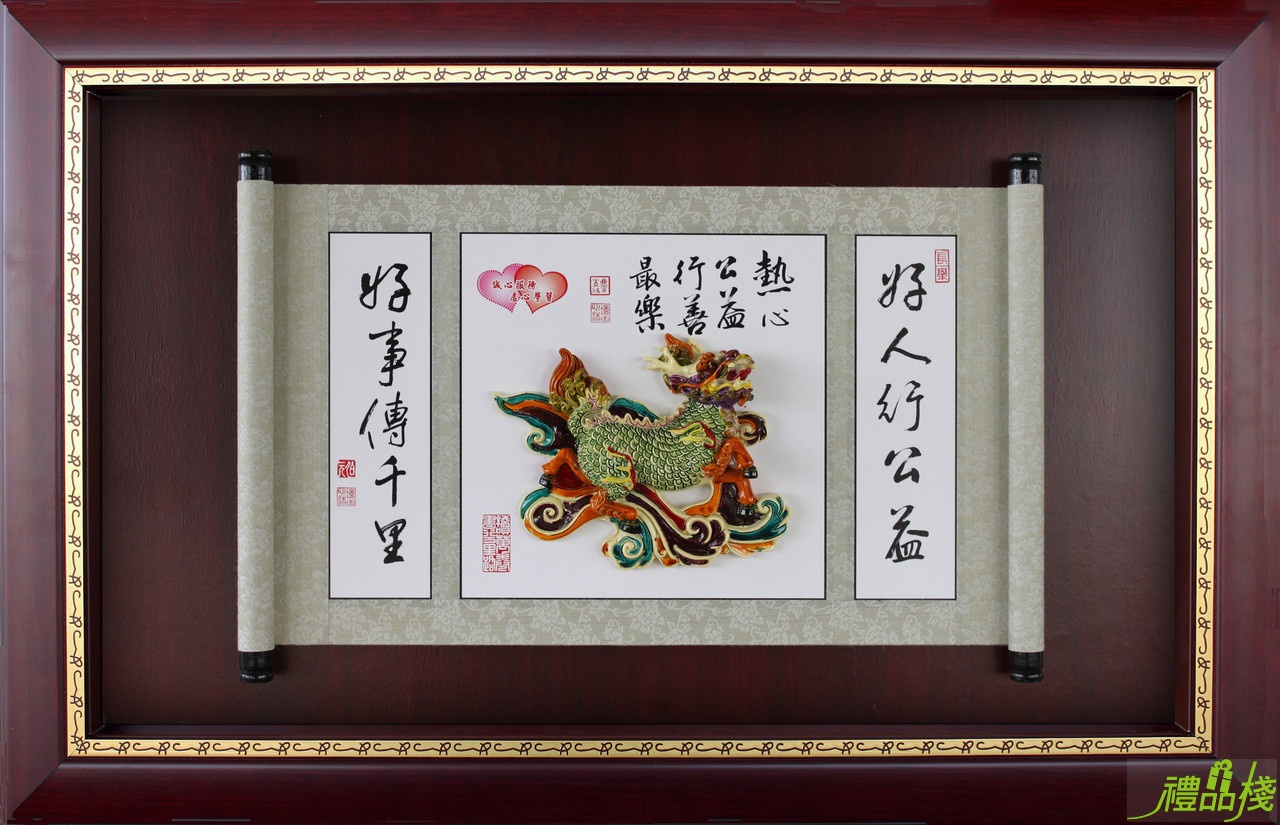 好人行公益
熱心
公益
行善
最樂
誠心服務
虛心學習
好事傳千里
禮品棧